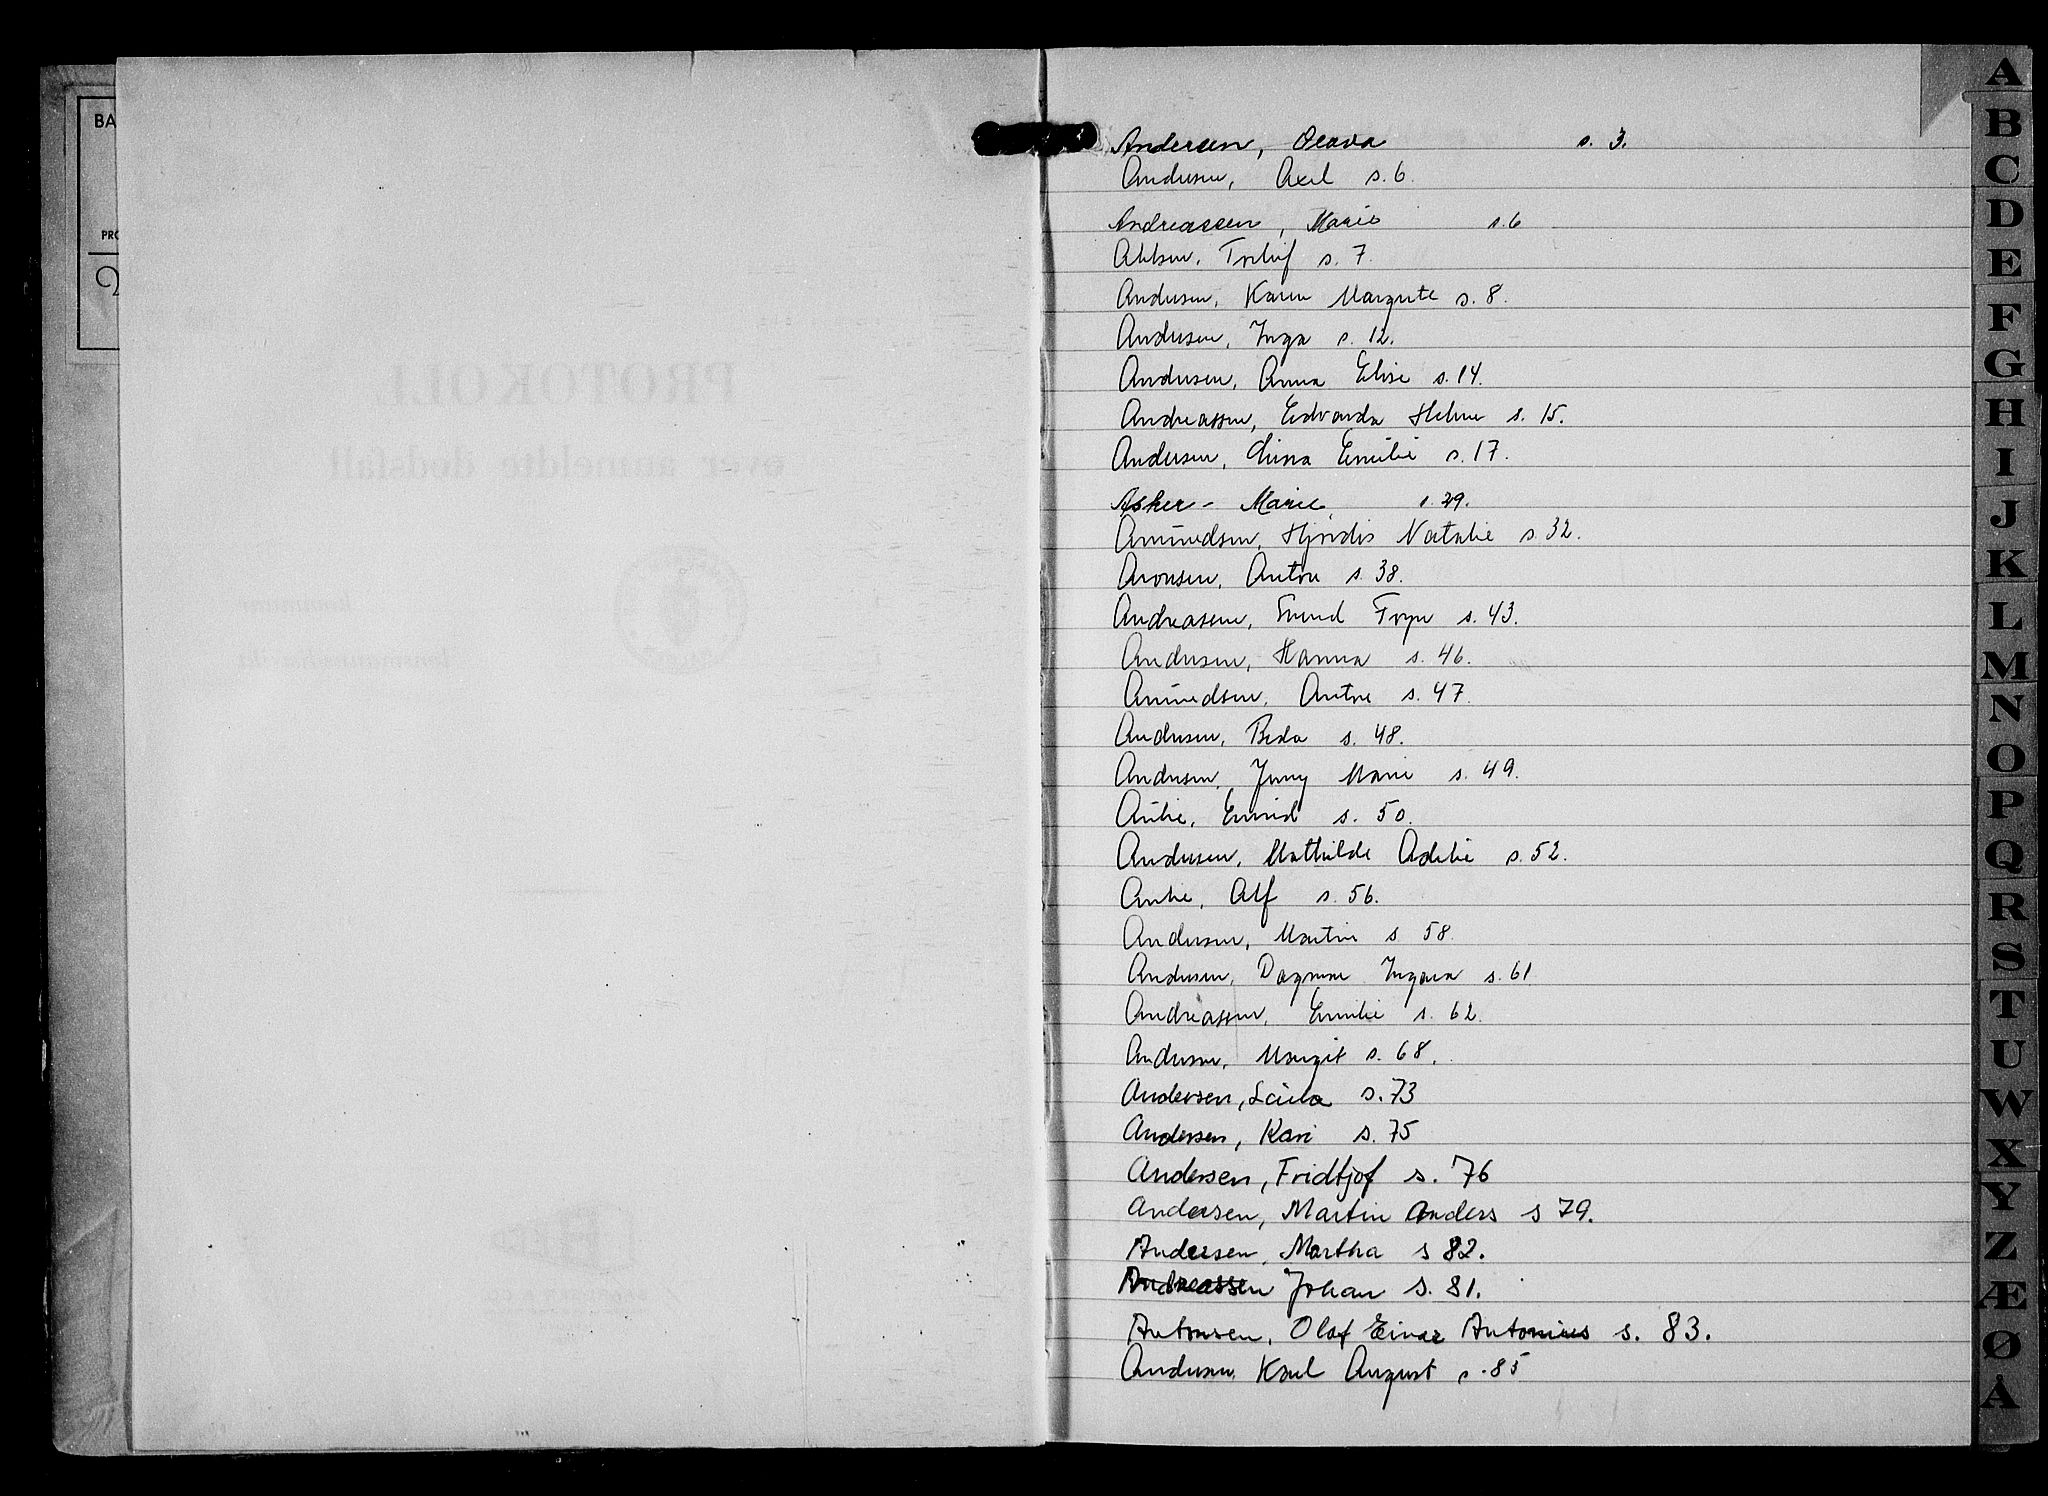 BA
PRO
Andersen, Olava s. 3.
Andersen, Axel s. 6.
Andreassen, Marie s. 6
s. 7.
Andersen, Karen Margrete s. 8.
Andersen, Inga s. 12.
Andersen, Anna Elise s. 14.
Andreassen, Edvarda Helene s. 15.
Andersen, Emilie s. 17.
Asker - Marie s. 29.
Amundsen, Hjørdis Natalie s. 32.
Aronsen, Anton s. 38.
Andreassen, s. 43.
Andersen, Hanna s. 46.
Amundsen, Anton s. 47
Andersen, Beda s. 48.
Andersen, Jenny Marie s. 49.
s. 50.
Andersen, Mathilde Adele s. 52.
Alf s. 56.
Andersen, Martin s 58.
Andersen, Dagmar s. 61
Andreassen, Emilie s. 62.
Andersen, Margit s. 68.
Andersen, Laila s. 73
Andersen, Kari s. 75
Andersen, Fridtjof s. 76
Andersen, Martin Anders s 79.
Andersen, Martha s 82.
Andreassen Johan s. 81.
Antonsen, Olaf Einar Antonius s. 83.
Andersen, Karl August s. 85
A
B
C
D
E
F
G
H
I
J
K
L
M
N
O
P
Q
R
S
T
U
W
X
Y
Z
Æ
Ø
Å
PROTOKOLL
over anmeldte dødsfall
kommune
lensmannsdistrikt